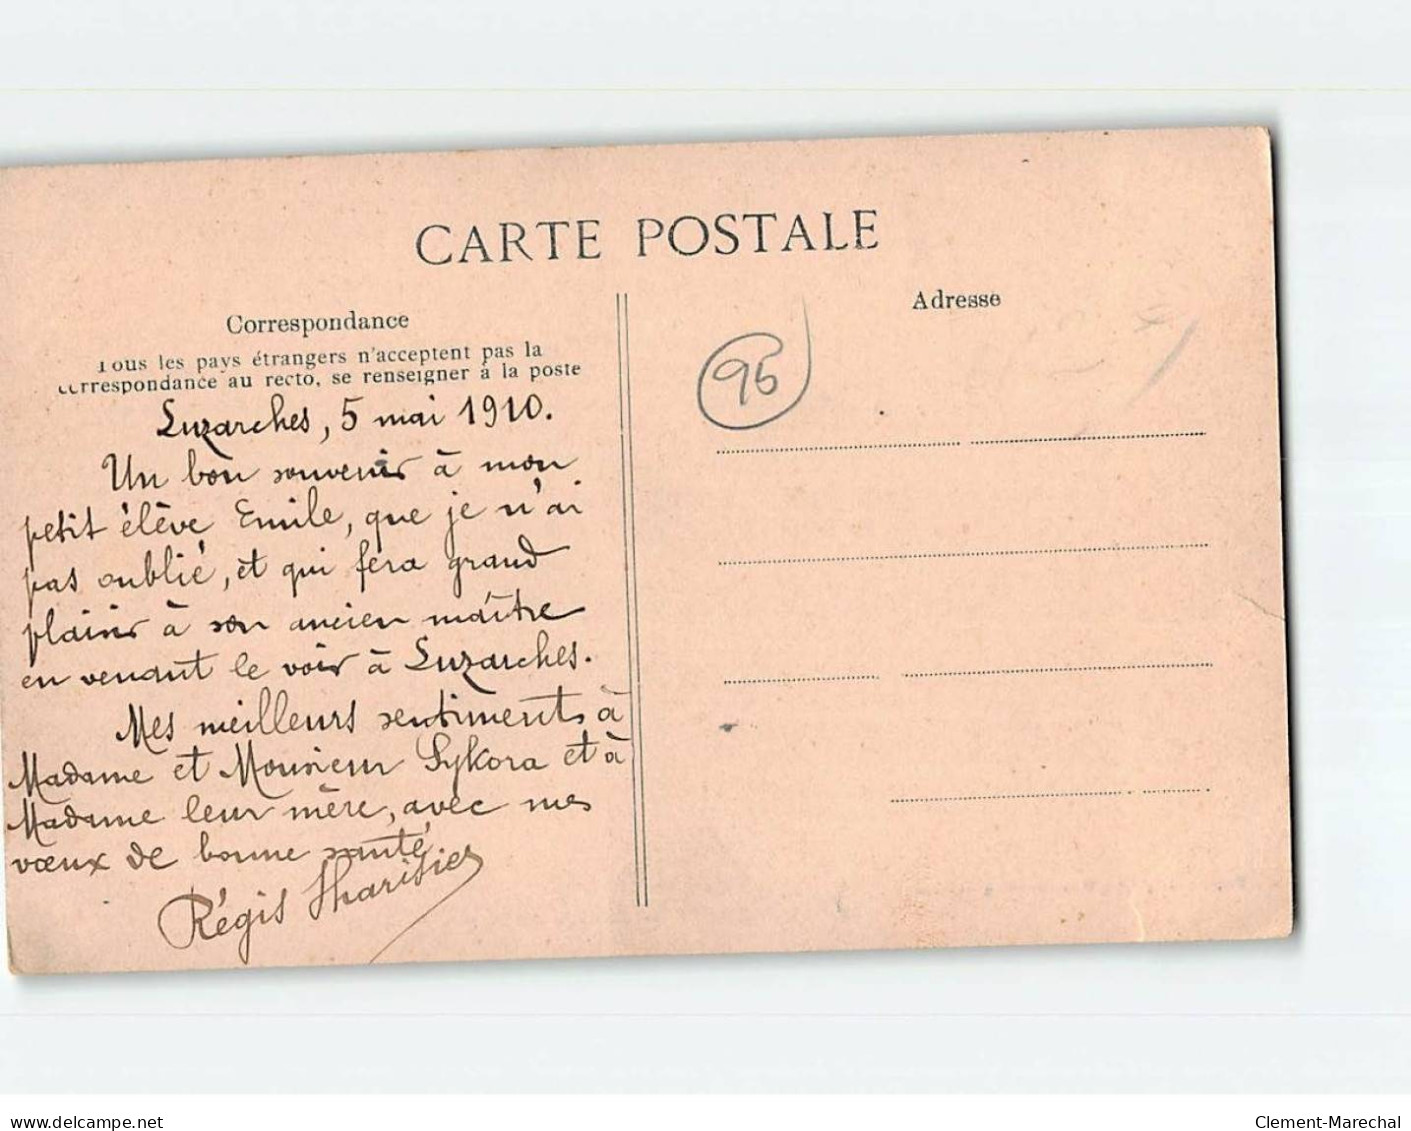 CARTE POSTALE
Correspondance
Tous les pays étrangers n'acceptent pas la
correspondance au recto, se renseigner à la poste
Luzarches, 5 mai 1910.
Un bon souvenir à mon
petit élève Emile, que je n'ai
pas oublié, et qui fera grand
plaisir à son ancien maître
en venant le voir à Luzarches.
Mes meilleurs sentiments à
Madame et Monsieur Sykora et à
Madame leur mère, avec mes
vœux de bonne santé,
Régis
Adresse
95
www.delcampe.net
Clement-Marechal